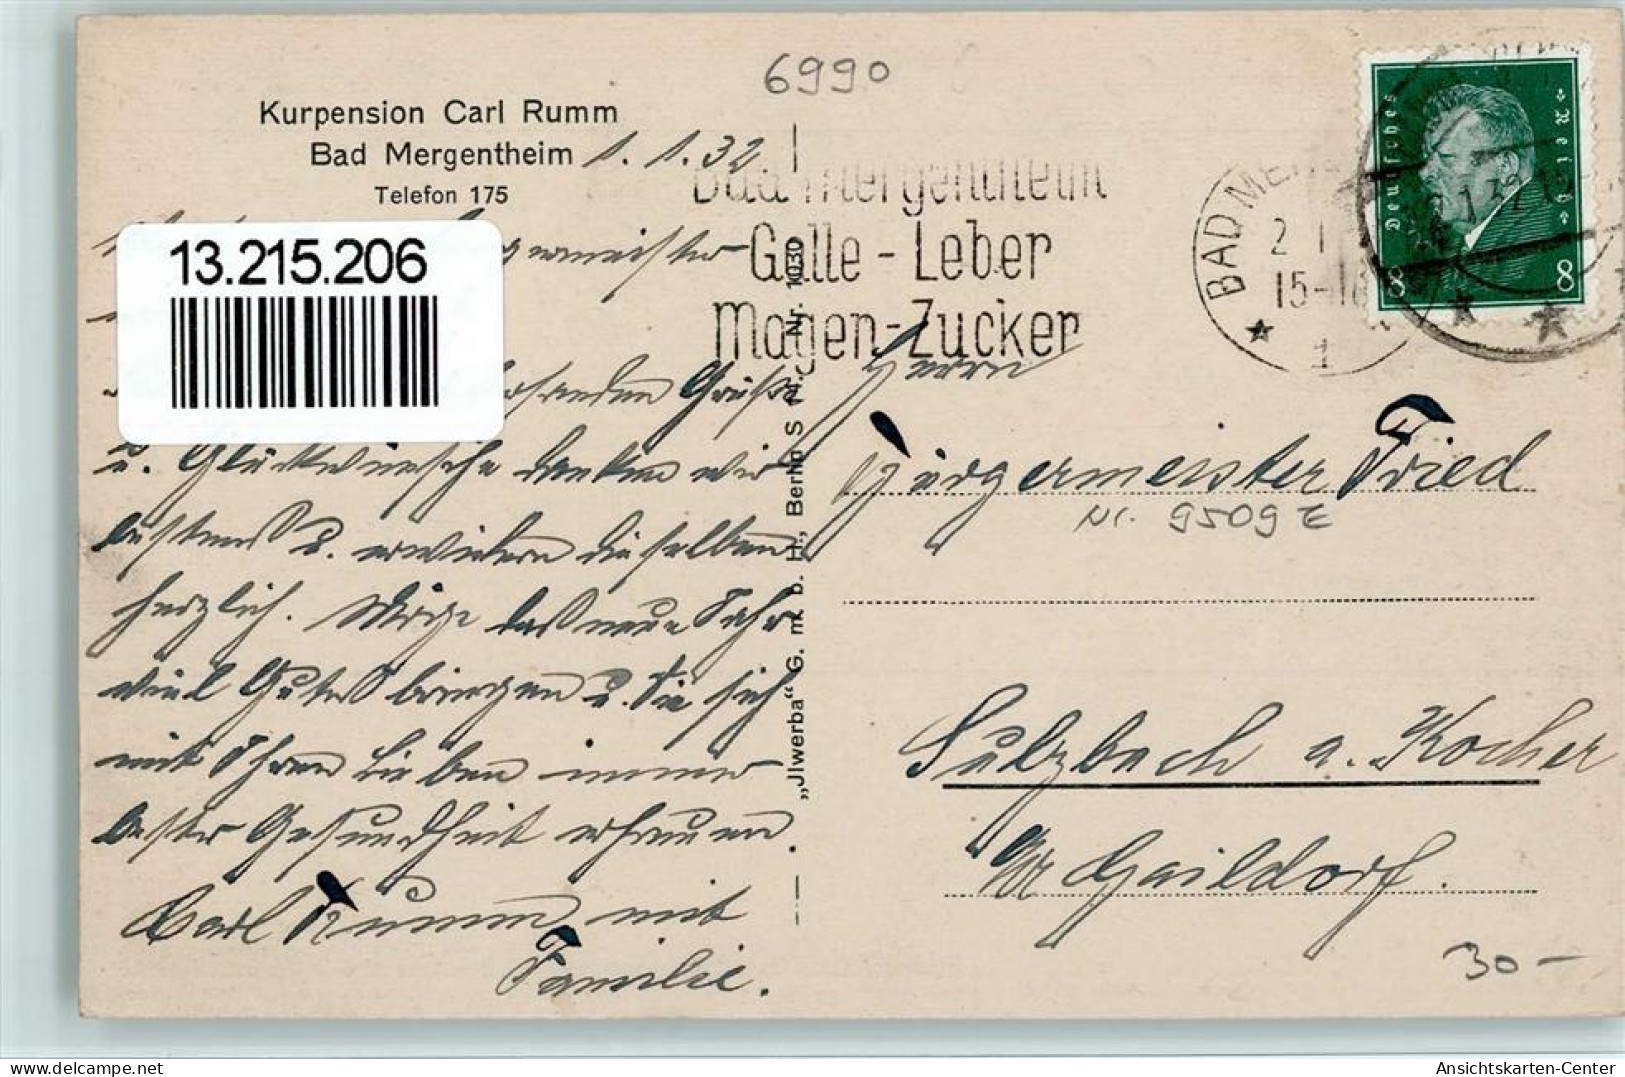 6990
Kurpension Carl Rumm
Bad Mergentheim 1.1.32.
Telefon 175
13.215.206
u. Glückwünsche danken wir
bestens u. erwidern dieselben
herzlich. Möge das neue Jahr
viel Gutes bringen u. Sie sich
mit Ihren Lieben immer
bester Gesundheit erfreuen.
Carl Rumm mit
Familie.
„Jlwerba“ G. m. b. H., Berlin S
Nr. 1030
Bad Mergentheim
Galle - Leber
Magen - Zucker
BAD ME
15-18
1
Deutsches Reich
8 8
Herrn
Bürgermeister Fried
Nr. 9509 E
Sulzbach a. Kocher
Gaildorf.
30-
delcampe.net
Ansichtskarten-Center